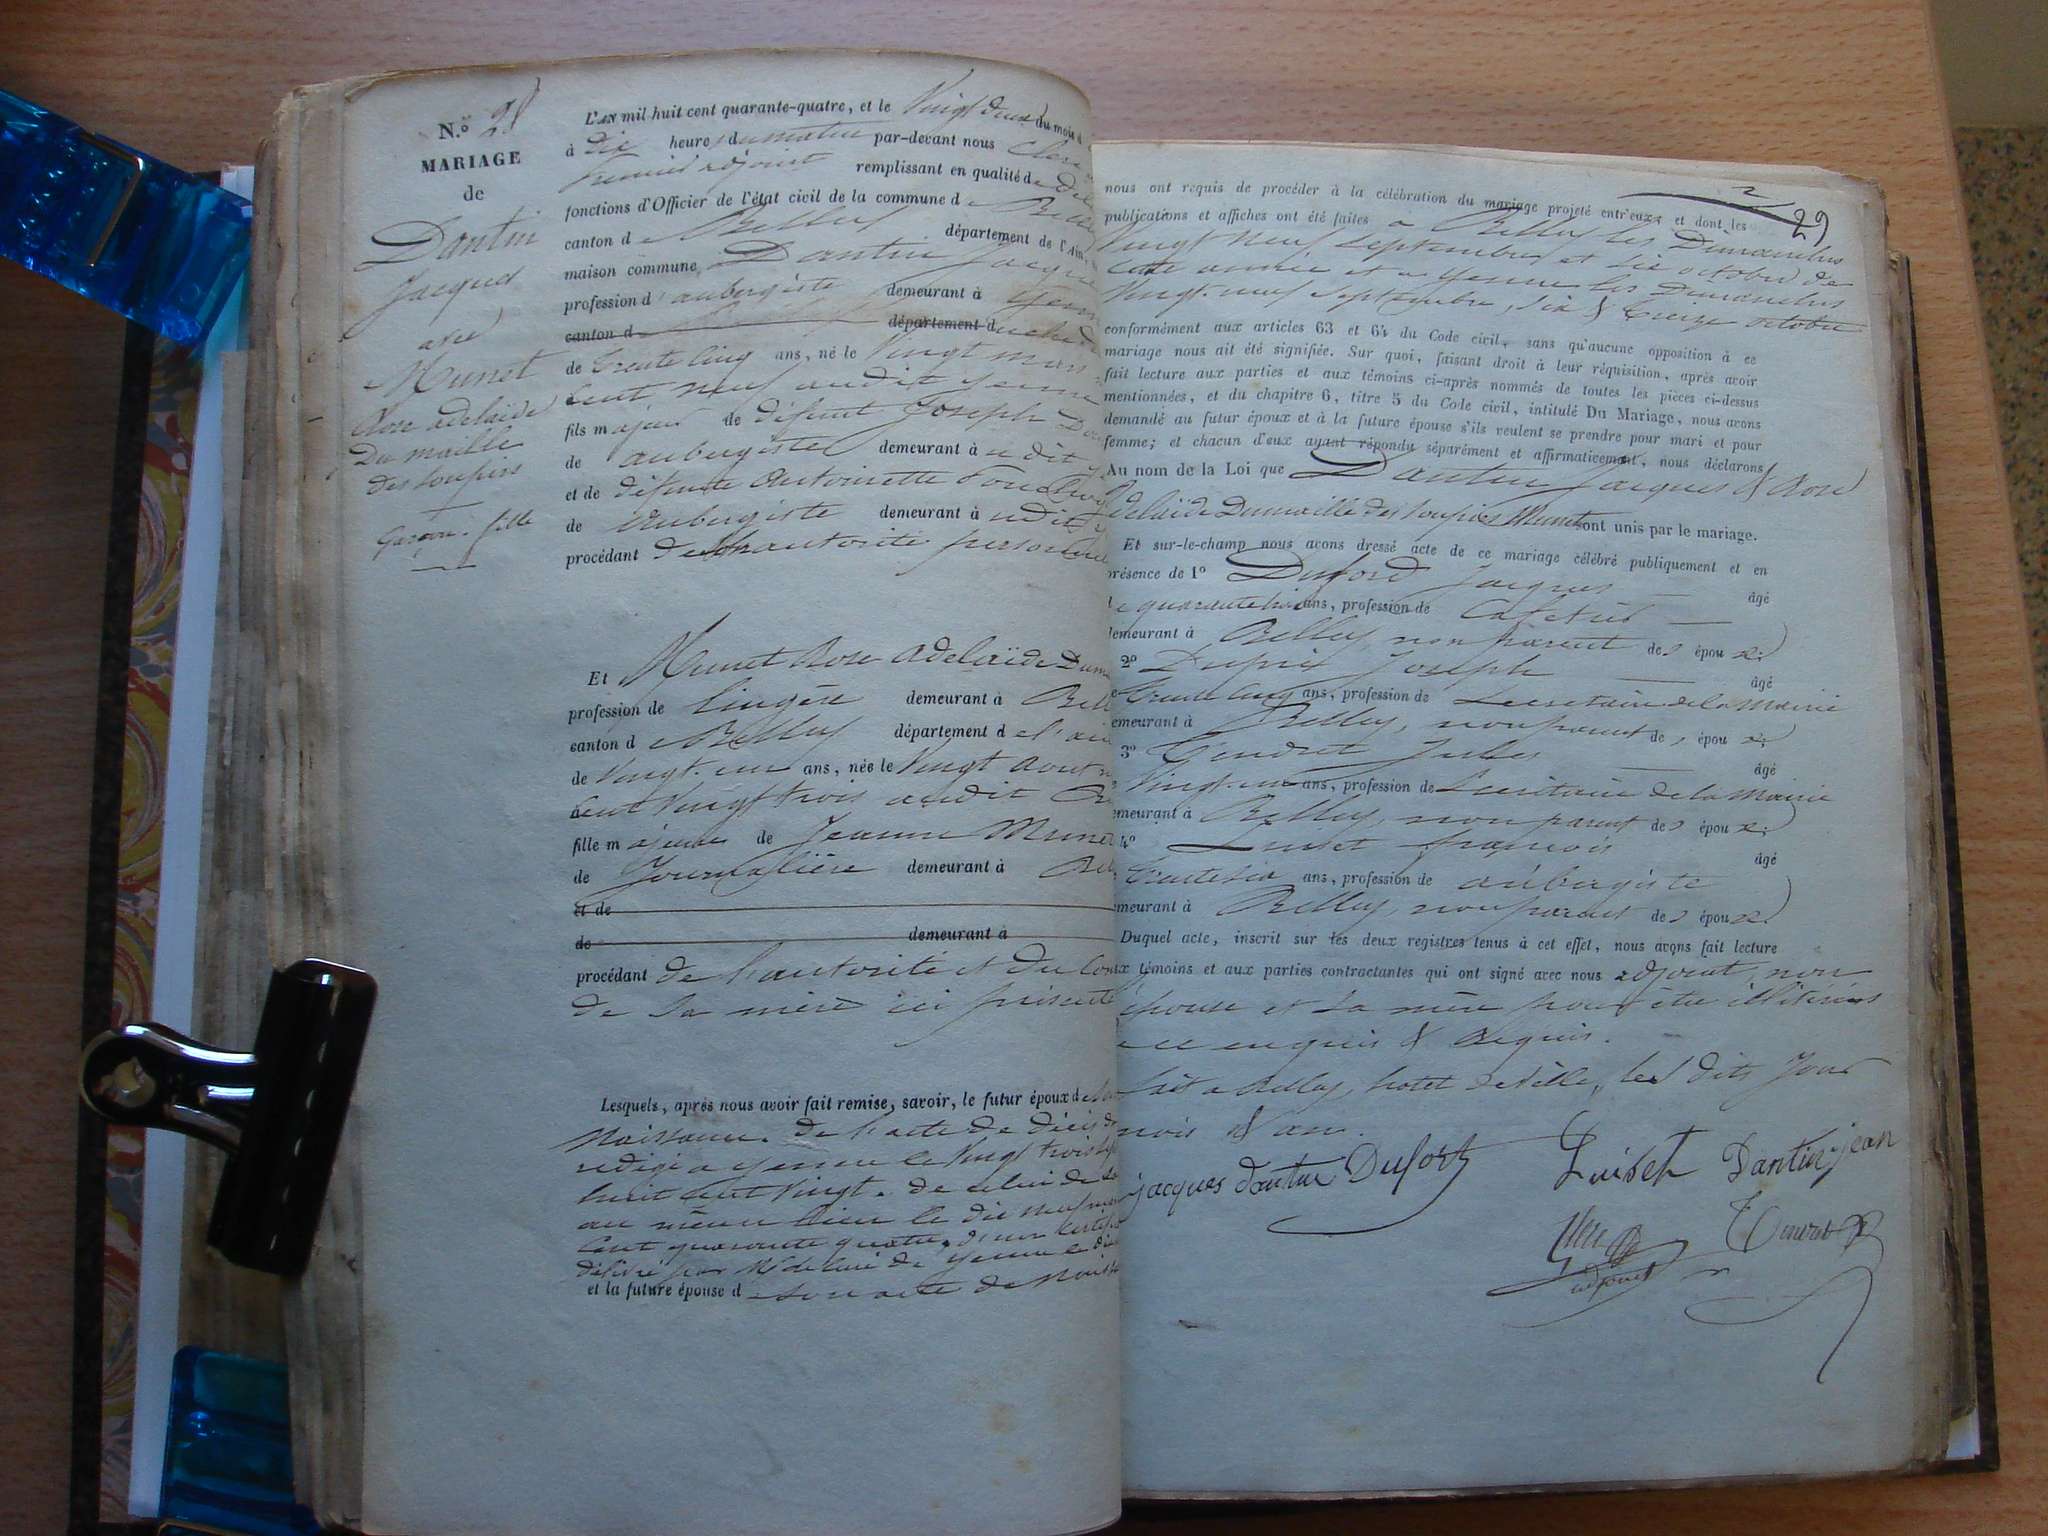 N.o 28
MARIAGE
de
Dantin
Jacques
avec
Munet
Rose adelaïde
Dumaille
des soupirs
Garçon. fille
L'AN mil huit cent quarante-quatre, et le Vingt deux du mois d
à dix heures du matin par-devant nous
premier adjoint remplissant en qualité de
fonctions d'Officier de l'état civil de la commune de Belley
canton de Belley département de l'Ain,
maison commune, Dantin Jacques
profession d'aubergiste demeurant à Yenne
canton d département d
de trente cinq ans, né le Vingt mars
cent neuf audit Yenne
fils majeur de défunt Joseph
de aubergiste demeurant à udit
et de défunte Antoinette
de aubergiste demeurant à udit
procédant de son autorité personnelle
Et Munet Rose adelaïde
profession de lingère demeurant à Belley
canton de Belley département de l'ain
de Vingt-un ans, née le Vingt aout
cent Vingt trois audit
fille majeure de Jeanne Munet
de Journalière demeurant à
et de
de demeurant à
procédant de l'autorité et du
de sa mère ici présente
Lesquels, après nous avoir fait remise, savoir, le futur époux d
Naissance. de l'acte de décès de
redigé a Yenne le Vingt trois
huit cent Vingt. de celui de sa
au même lieu le dix neuf
cent quarante quatre. d'un
délivré par Mr de Yenne le
et la future épouse de son acte de
2
29
nous ont requis de procéder à la célébration du mariage projeté entr'eux, et dont les
publications et affiches ont été faites à Belley les Dimanches
Vingt neuf Septembre et six octobre de
cette année et a Yenne les Dimanches
Vingt-neuf Septembre, six & treize octobre
conformément aux articles 63 et 64 du Code civil, sans qu'aucune opposition à ce
mariage nous ait été signifiée. Sur quoi, faisant droit à leur réquisition, après avoir
fait lecture aux parties et aux témoins ci-après nommés de toutes les pièces ci-dessus
mentionnées, et du chapitre 6, titre 5 du Code civil, intitulé Du Mariage, nous avons
demandé au futur époux et à la future épouse s'ils veulent se prendre pour mari et pour
femme; et chacun d'eux ayant répondu séparément et affirmativement, nous déclarons
Au nom de la Loi que Dantin Jacques & Rose
adelaïde Dumaille des soupirs Munet sont unis par le mariage.
Et sur-le-champ nous avons dressé acte de ce mariage célébré publiquement et en
présence de 1o Duford Jacques âgé
de quarante ans, profession de Cafetier
demeurant à Belley, non parent des époux;
2o Dupré Joseph âgé
trente cinq ans, profession de Secretaire de la Mairie
demeurant à Belley, non parent des époux;
3o Tendret Jules âgé
Vingt-un ans, profession de Secrétaire de la Mairie
demeurant à Belley, non parent des époux;
4o Luiset françois âgé
trente six ans, profession de aubergiste
demeurant à Belley, non parent des époux.
Duquel acte, inscrit sur les deux registres tenus à cet effet, nous avons fait lecture
aux témoins et aux parties contractantes qui ont signé avec nous adjoint, non
épouse et sa mère pour être illitérées
de ce enquis & Requis.
fait a Belley, hotel de Ville, les dits Jour
mois & an.
jacques dantin Dufort Luiset Dantin jean
Tendret
adjoint